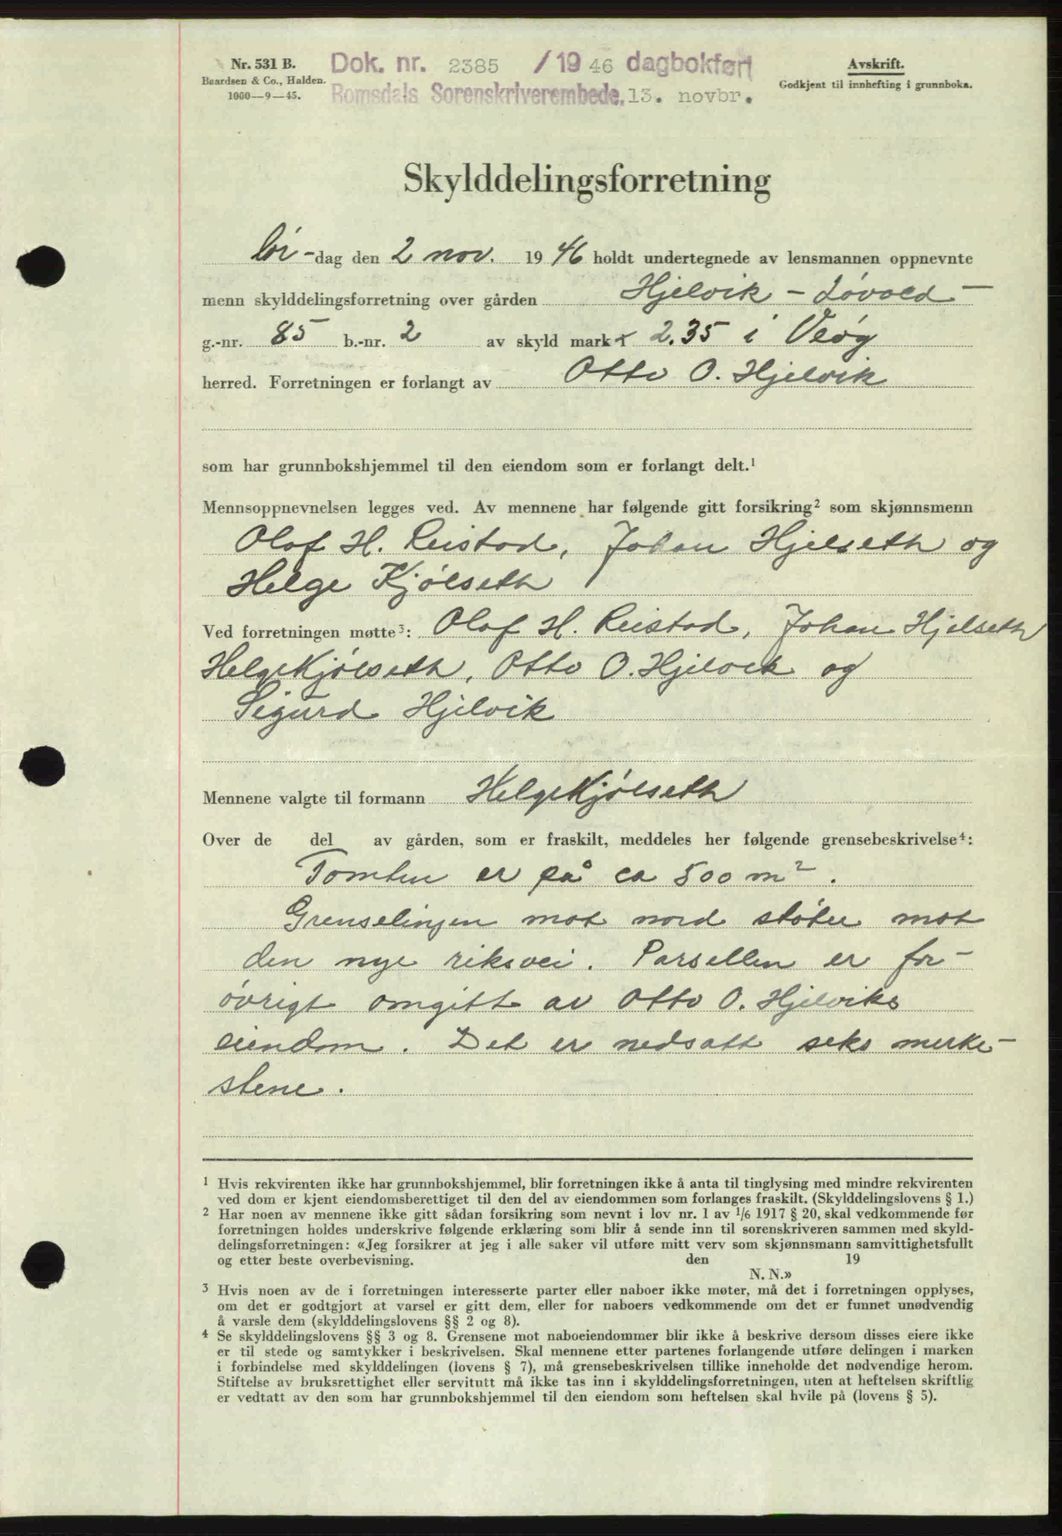 Nr. 531 B.
Baardsen & Co., Halden.
1000—9—45.
Dok. nr. 2385 /19 46 dagbokført
Romsdals Sorenskriverembede, 13. novbr.
Avskrift.
Godkjent til innhefting i grunnboka.
Skylddelingsforretning
Lør-dag den 2 nov. 1946 holdt undertegnede av lensmannen oppnevnte
menn skylddelingsforretning over gården Hjelvik - Løvold -
g.-nr. 85 b.-nr. 2 av skyld mark 2.35 i Veøy
herred. Forretningen er forlangt av Otto O. Hjelvik
som har grunnbokshjemmel til den eiendom som er forlangt delt.¹
Mennsoppnevnelsen legges ved. Av mennene har følgende gitt forsikring² som skjønnsmenn
Olaf H. Reistad, Johan Hjelseth og
Helge Kjølseth
Ved forretningen møtte³: Olaf H. Reistad, Johan Hjelseth
Helge Kjølseth, Otto O. Hjelvik og
Sigurd Hjelvik
Mennene valgte til formann Helge Kjølseth
Over de del av gården, som er fraskilt, meddeles her følgende grensebeskrivelse⁴:
Tomten er på ca 500 m².
Grenselinjen mot nord støter mot
den nye riksvei. Parsellen er for-
øvrigt omgitt av Otto O. Hjelviks
eiendom. Det er nedsatt seks merke-
stene.
¹ Hvis rekvirenten ikke har grunnbokshjemmel, blir forretningen ikke å anta til tinglysing med mindre rekvirenten
ved dom er kjent eiendomsberettiget til den del av eiendommen som forlanges fraskilt. (Skylddelingslovens § 1.)
² Har noen av mennene ikke gitt sådan forsikring som nevnt i lov nr. 1 av 1/6 1917 § 20, skal vedkommende før
forretningen holdes underskrive følgende erklæring som blir å sende inn til sorenskriveren sammen med skyld-
delingsforretningen: «Jeg forsikrer at jeg i alle saker vil utføre mitt verv som skjønnsmann samvittighetsfullt
og etter beste overbevisning. den 19
N. N.»
³ Hvis noen av de i forretningen interesserte parter eller naboer ikke møter, må det i forretningen opplyses,
om det er godtgjort at varsel er gitt dem, eller for naboers vedkommende om det er funnet unødvendig
å varsle dem (skylddelingslovens §§ 2 og 8).
⁴ Se skylddelingslovens §§ 3 og 8. Grensene mot naboeiendommer blir ikke å beskrive dersom disses eiere ikke
er til stede og samtykker i beskrivelsen. Skal mennene etter partenes forlangende utføre delingen i marken
i forbindelse med skylddelingen (lovens § 7), må grensebeskrivelsen tillike inneholde det nødvendige herom.
Stiftelse av bruksrettighet eller servitutt må ikke tas inn i skylddelingsforretningen, uten at heftelsen skriftlig
er vedtatt av den som har grunnbokshjemmel til den eiendom som heftelsen skal hvile på (lovens § 5).